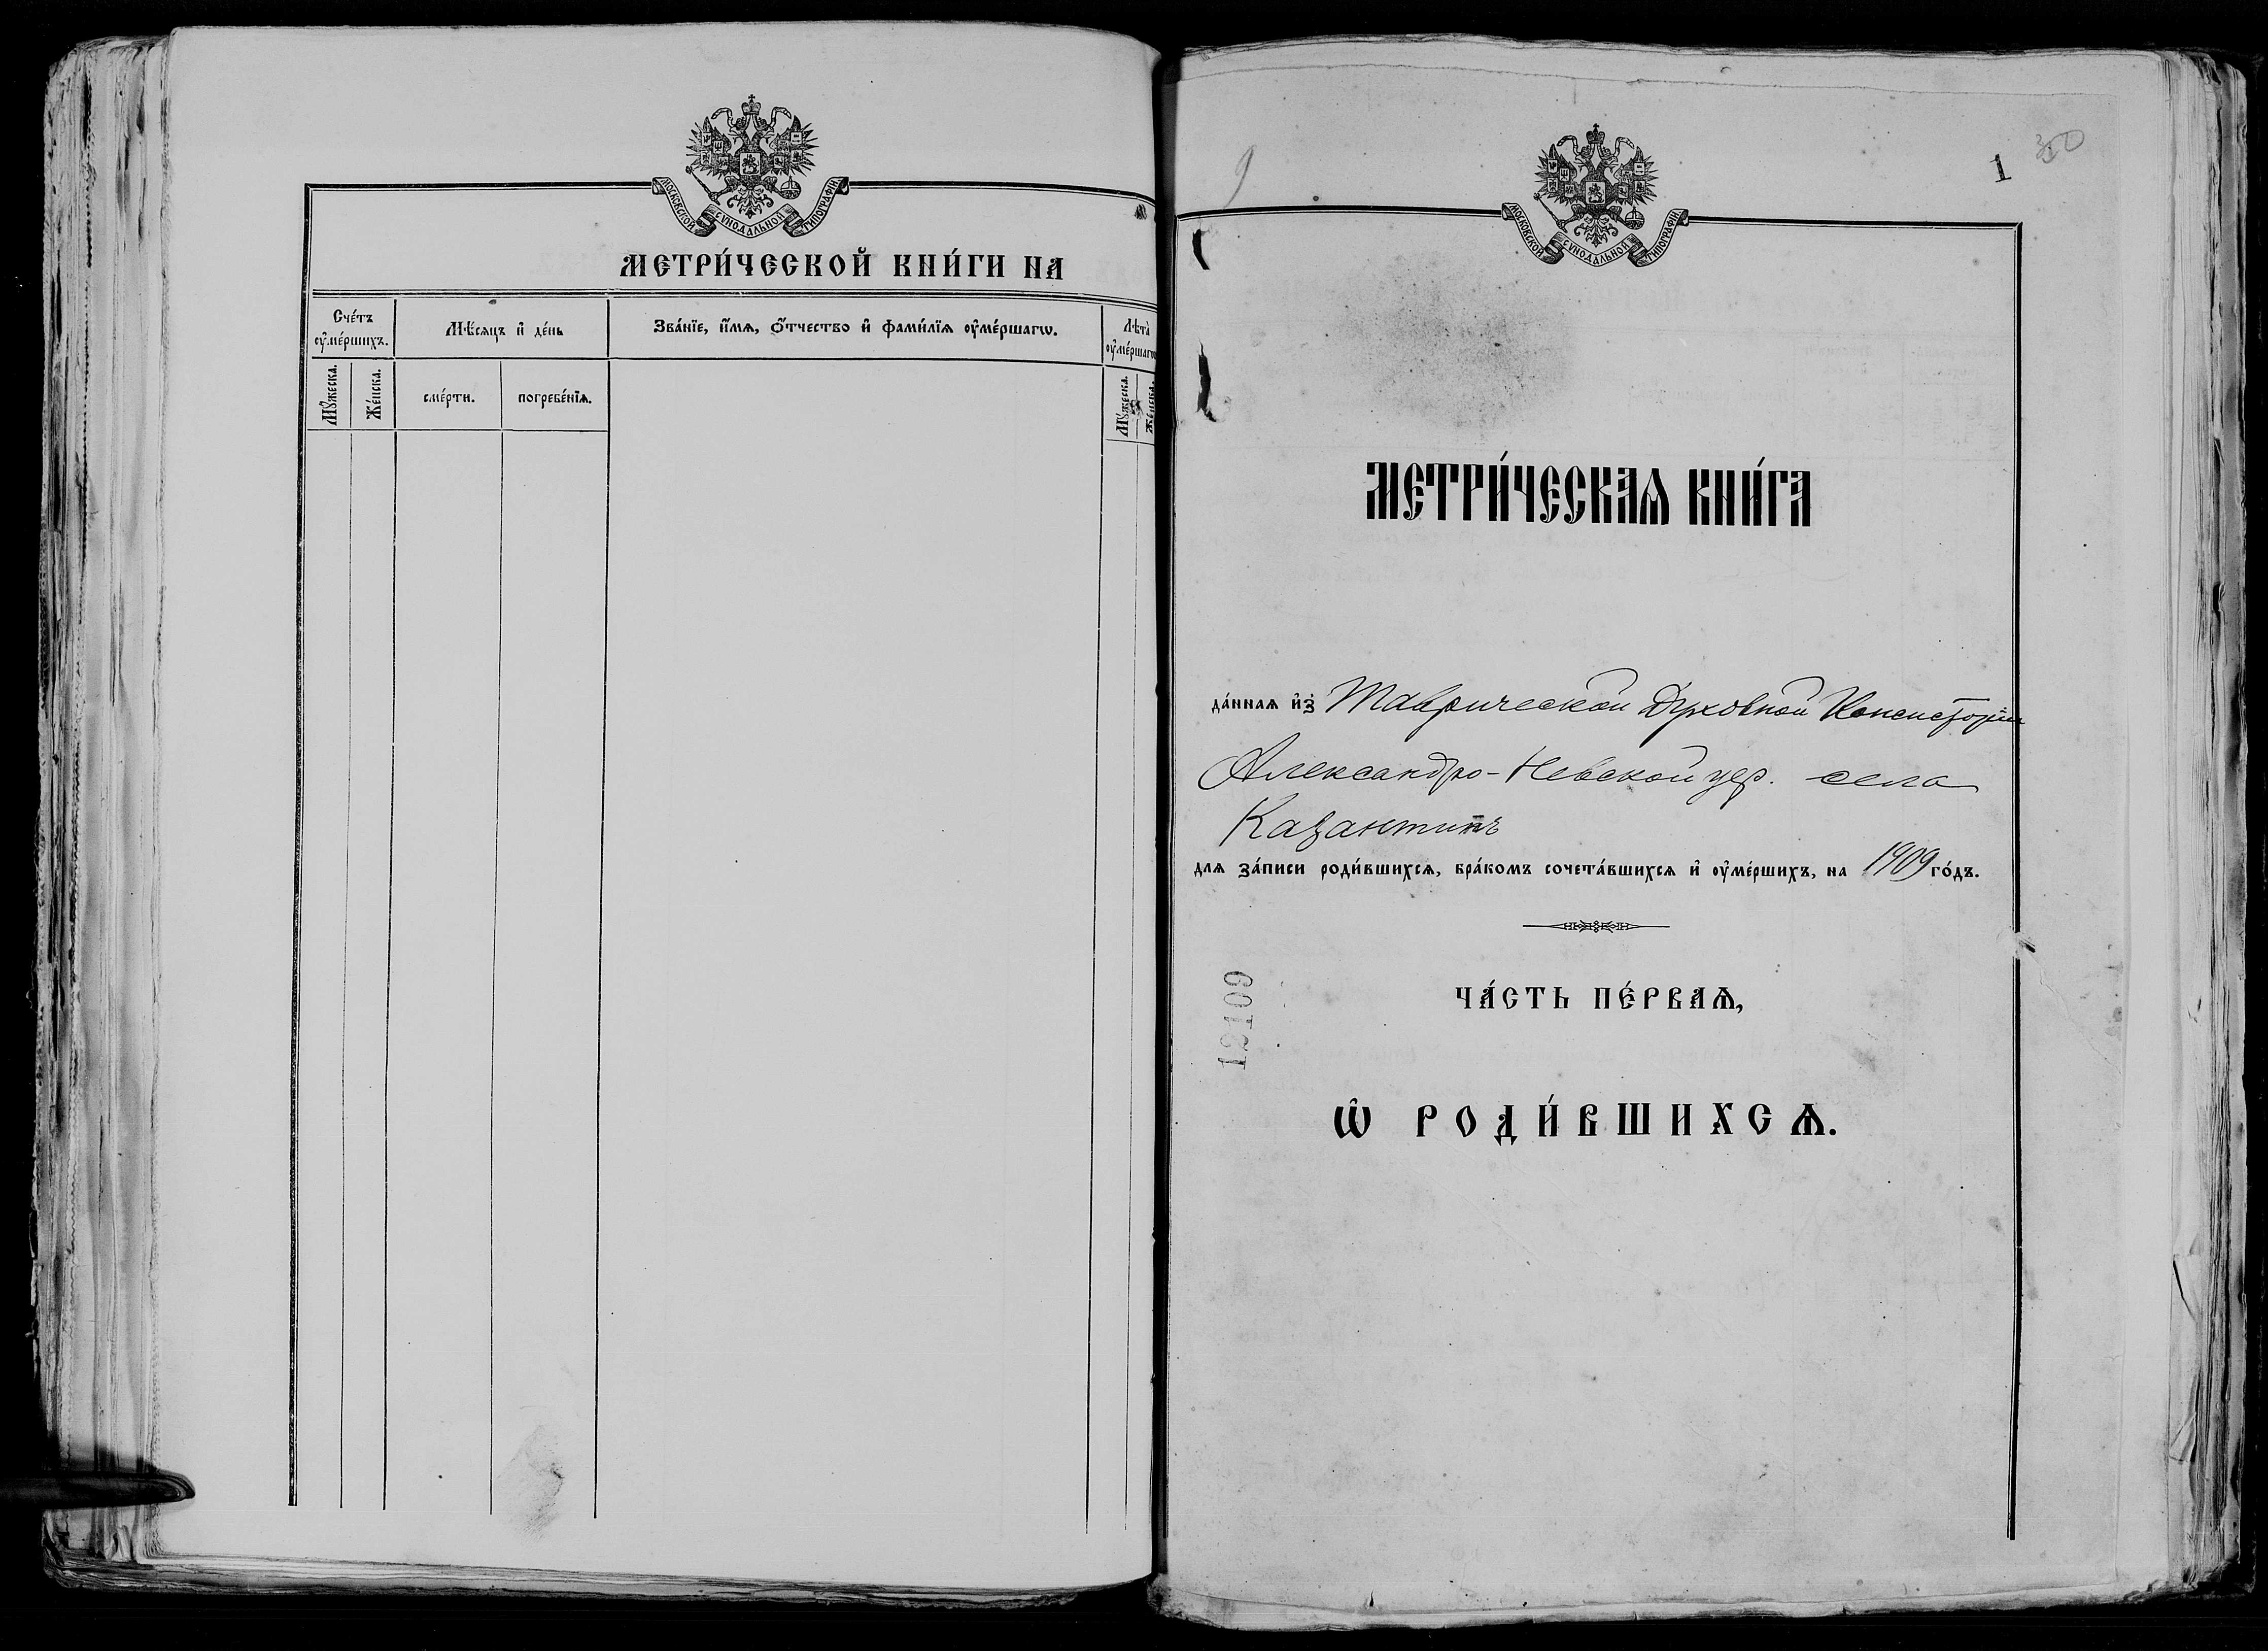 МОСКОВСКОЙ СѴНОДАЛЬНОЙ ТИПОГРАФІИ
МЕТРИ́ЧЕСКОЙ КНИ́ГИ НА
Сче́тъ ᲂу҆ме́ршихъ.
Мѣ́сѧцъ и҆ де́нь
Зва́нїе, и҆́мѧ, ѻ҆́тчество и҆ фами́лїѧ ᲂу҆ме́ршагѡ.
Лѣта̀ ᲂу҆ме́ршагѡ
Мꙋ́жеска.
Же́нска.
сме́рти.
погребе́нїѧ.
Мꙋ́жеска.
Же́нска.
9
1
30
МОСКОВСКОЙ СѴНОДАЛЬНОЙ ТИПОГРАФІИ
МЕТРИ́ЧЕСКАѦ КНИ́ГА
да́ннаѧ и҆з̾ Таврической Духовной Консисторіи
Александро-Невской цер. села
Казантипъ
длѧ за́писи роди́вшихсѧ, бра́комъ сочета́вшихсѧ и҆ ᲂу҆ме́ршихъ, на 1909 го́дъ.
12109
ЧА́СТЬ ПЕ́РВАѦ,
Ѡ҆ РОДИ́ВШИХСѦ.